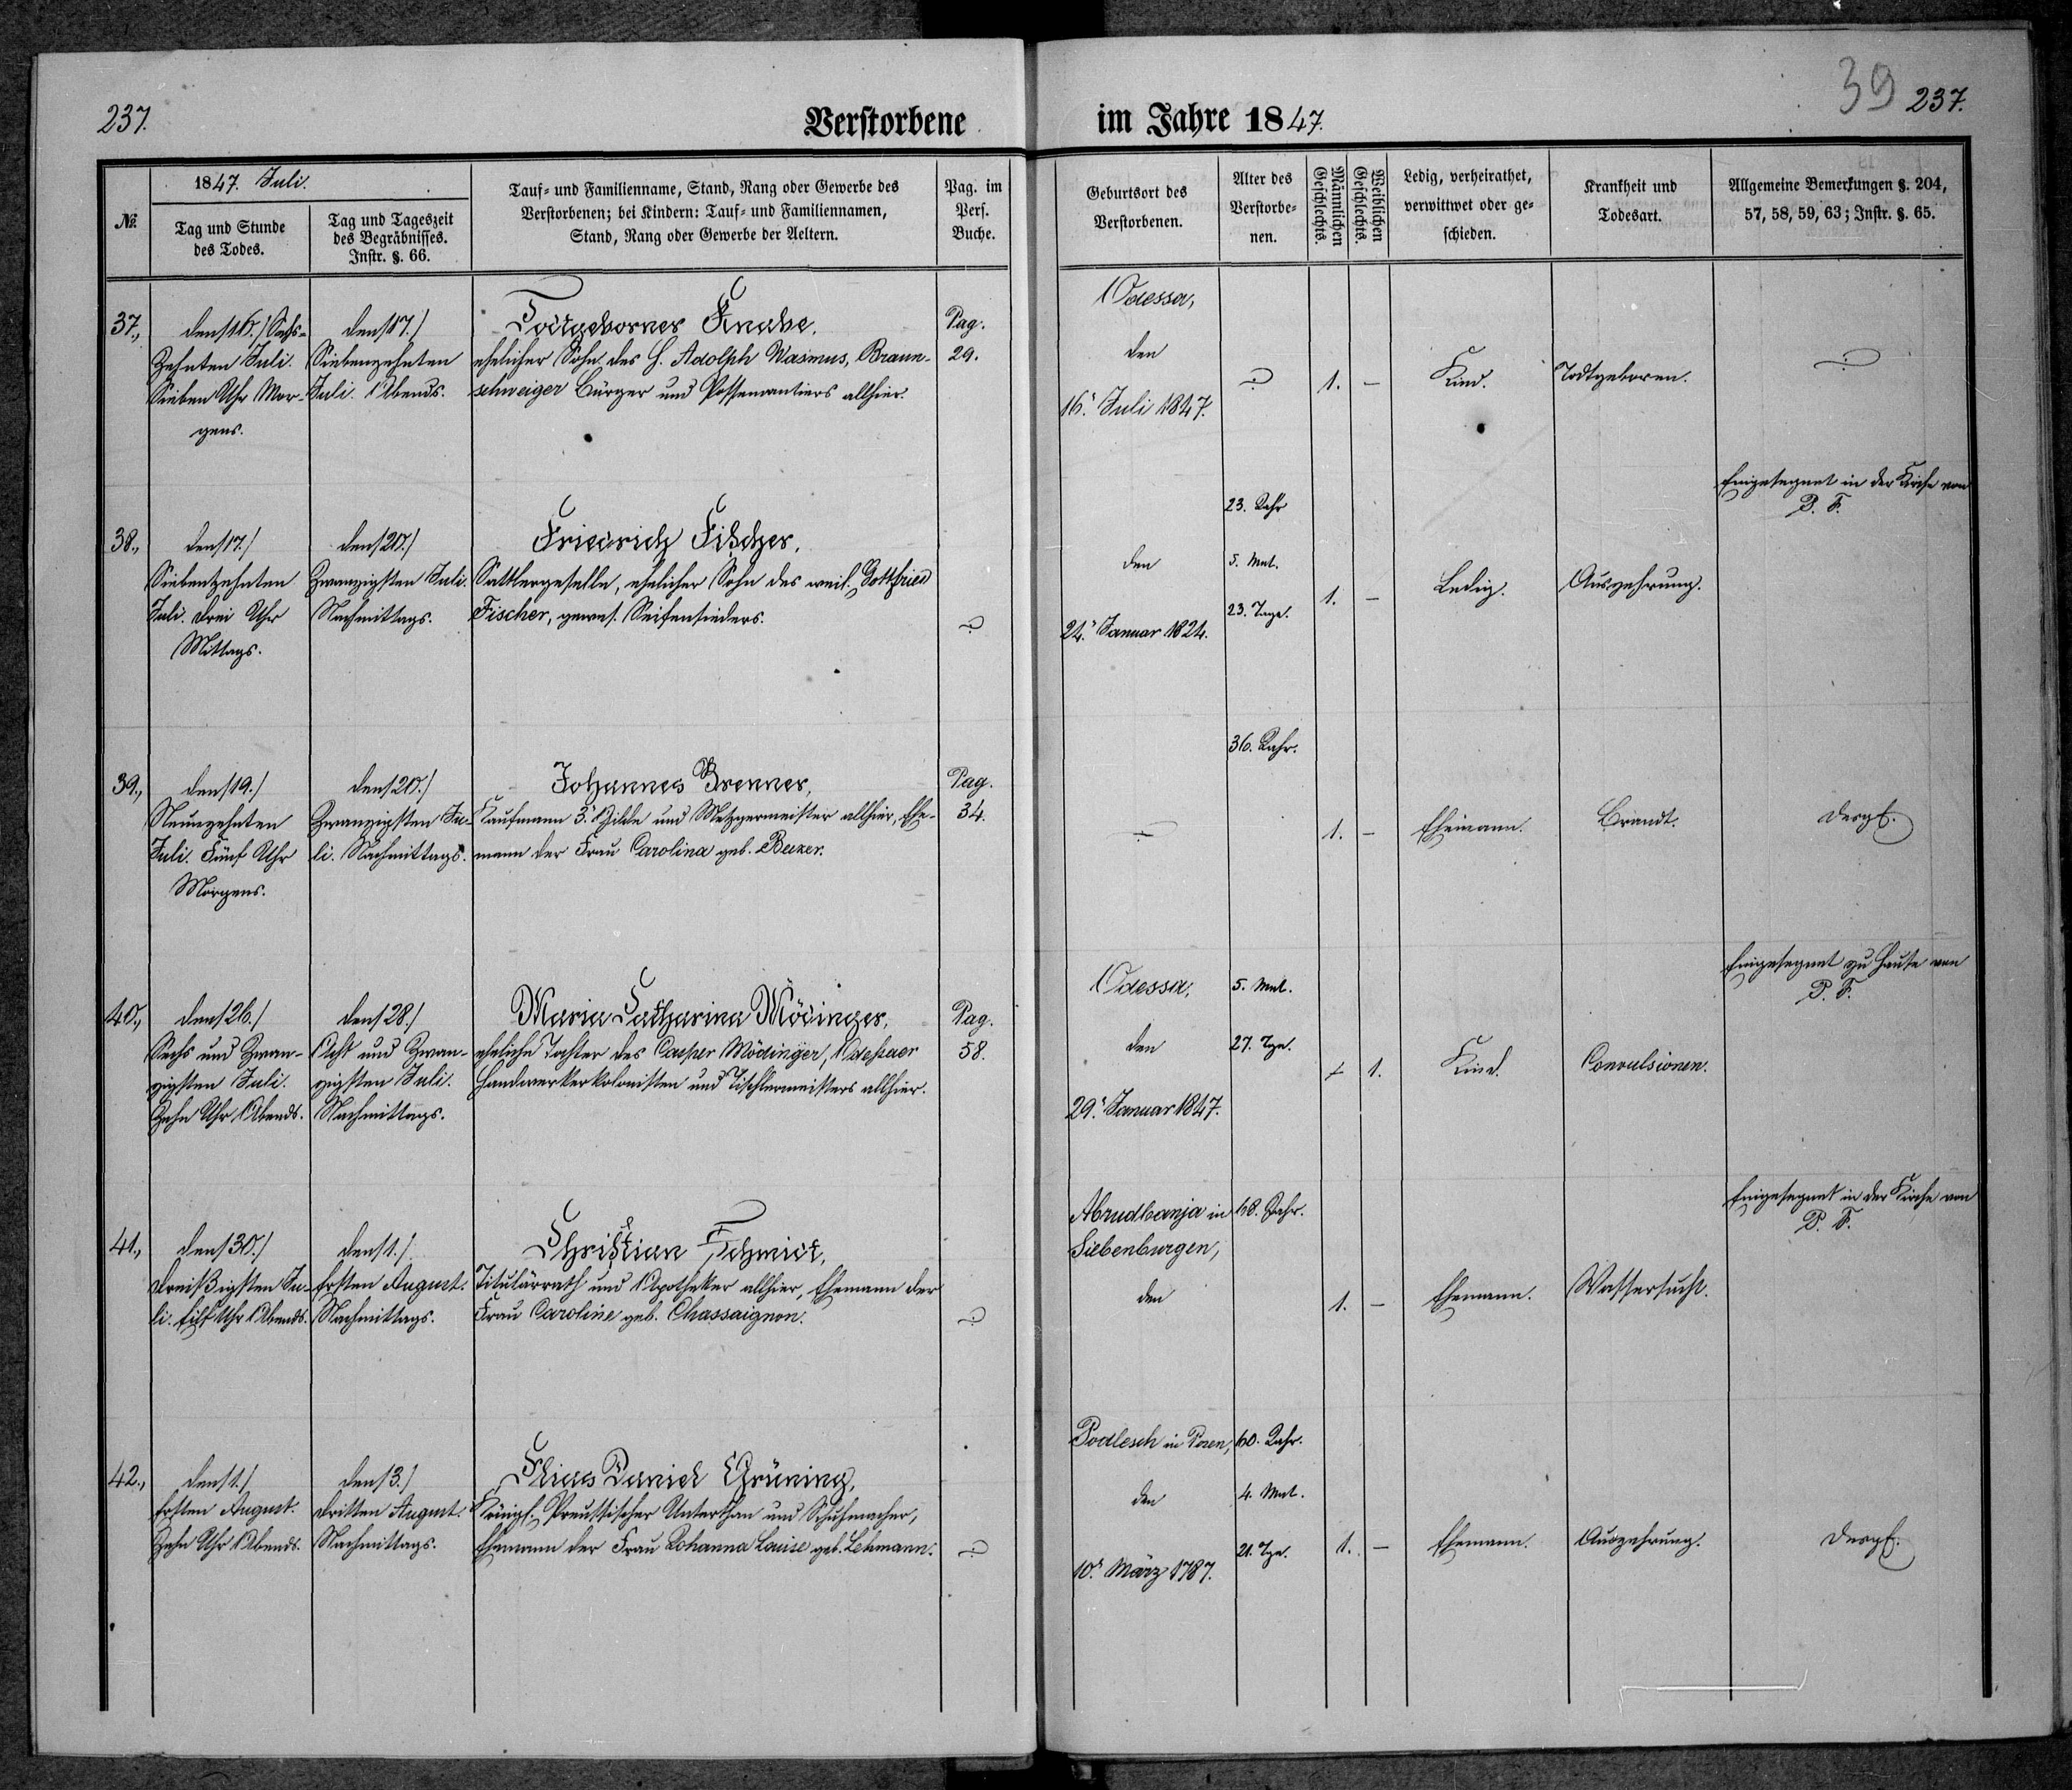 237.
Verstorbene
№
1847. Juli.
Tag und Stunde
des Todes.
Tag und Tageszeit
des Begräbnisses.
Instr. §. 66.
Tauf- und Familienname, Stand, Rang oder Gewerbe des
Verstorbenen; bei Kindern: Tauf- und Familiennamen,
Stand, Rang oder Gewerbe der Aeltern.
Pag. im
Pers.
Buche.
37.,
den /16./ Sechs-
zehnten Juli.
Sieben Uhr Mor-
gens.
den /17./
Siebenzehnten
Juli. Abends.
Todtgeborner Knabe.
ehelicher Sohn des H. Adolph Wasmus, Braun-
schweiger Bürger und Possemantiers allhier.
Pag.
29.
38.,
den /17./
Siebenzehnten
Juli. Drei Uhr
Mittags.
den /20./
Zwanzigsten Juli.
Nachmittags.
Friedrich Fischer,
Sattlergeselle, ehelicher Sohn des weil. Gottfried
Fischer, gewes. Seifensieders.
39.,
den /19./
Neunzehnten
Juli. Fünf Uhr
Morgens.
den /20./
Zwanzigsten Ju-
li. Nachmittags.
Johannes Brenner,
Kaufmann 3. Gilde und Metzgermeister allhier, Ehe-
mann der Frau Carolina geb.
Pag.
34.
40.,
den /26./
Sechs und Zwan-
zigsten Juli.
Zehn Uhr Abends.
den /28./
Acht und Zwan-
zigsten Juli.
Nachmittags.
Maria Catharina Mödinger,
eheliche Tochter des Casper Mödinger, Odessaer
Handwerkerkolonisten und Tischlermeisters allhier.
Pag.
58.
41.,
den /30./
Dreißigsten Ju-
li. Eilf Uhr Abends.
den /1./
Ersten August.
Nachmittags.
Christian Schmidt,
Titulärrath und Apotheker allhier, Ehemann der
Frau Caroline geb. Chassaignon.
42.,
den /1./
Ersten August.
Zehn Uhr Abends.
den /3./
Dritten August.
Nachmittags.
Elias Daniel Grüning,
Königl. Preussischer Unterthan und Schuhmacher,
Ehemann der Frau Johanna Louise geb. Lehmann.
im Jahre 1847.
39
237.
Geburtsort des
Verstorbenen.
Alter des
Verstorbe-
nen.
Männlichen
Geschlechts.
Weiblichen
Geschlechts.
Ledig, verheirathet,
verwittwet oder ge-
schieden.
Krankheit und
Todesart.
Allgemeine Bemerkungen §. 204,
57, 58, 59, 63; Instr. §. 65.
Odessa,
den
16. Juli 1847.
1.
–
Kind.
Todtgeboren.
den
24. Januar 1824.
23. Jahr
5. Mnt.
23. Tage.
1.
–
Ledig.
Auszehrung.
Eingesegnet in der Kirche von
P. F.
36. Jahr.
1.
–
Ehemann.
Brandt.
Desgl.
Odessa,
den
29. Januar 1847.
5. Mnt.
27. Tge.
1.
Kind.
Convulsionen.
Eingesegnet zu Hause von
P. F.
Abrudbanja in
Siebenburgen,
den
68. Jahr.
1.
–
Ehemann.
Wassersucht.
Eingesegnet in der Kirche von
P. F.
Podlesch in Posen,
den
10. März 1787.
60. Jahr.
4. Mnt.
21. Tge.
1.
–
Ehemann.
Auszehrung.
Desgl.